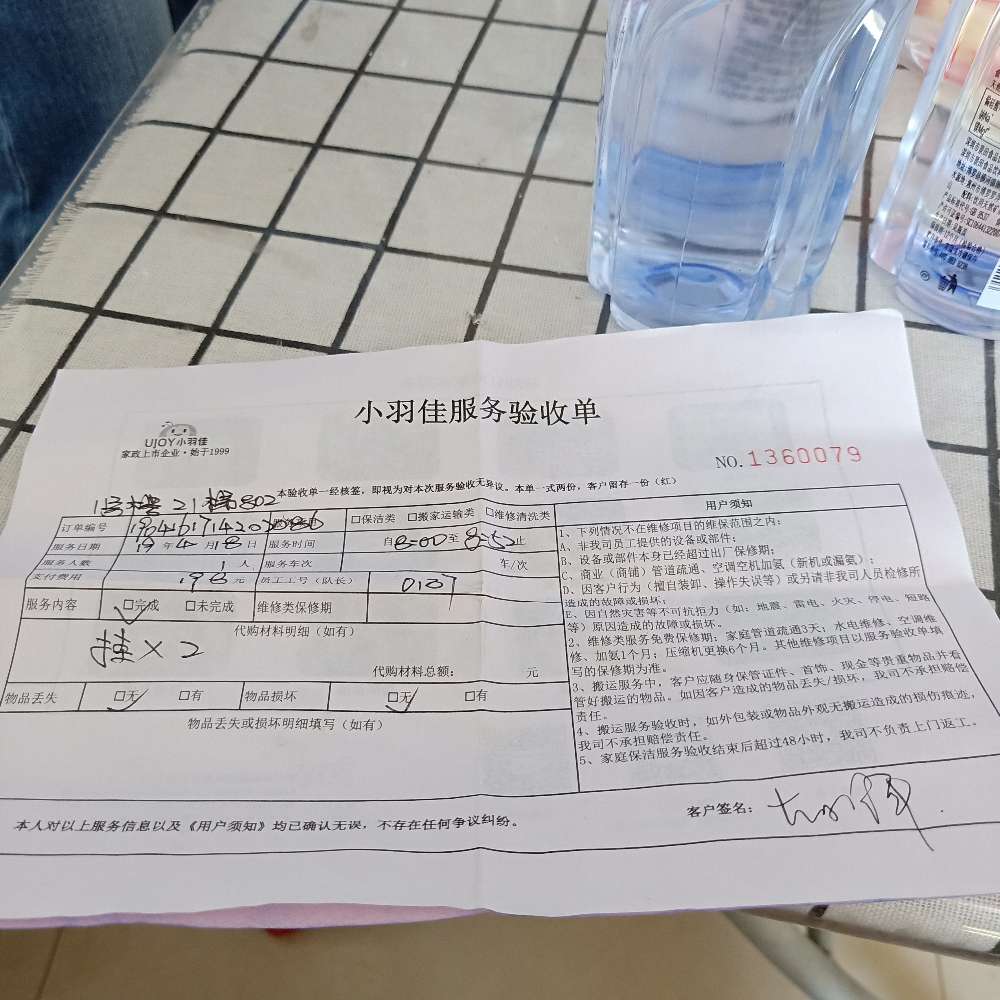 小羽佳服务验收单
UJOY小羽佳
家政上市企业·始于1999
NO.1360079
本验收单一经核签，即视为对本次服务验收无异议。本单一式两份，客户留存一份（红）
订单编号
□保洁类 □搬家运输类 □维修清洗类
服务日期 19年4月18日 服务时间 自8:00至8:52止
服务人数 1人 服务车次 车/次
支付费用 196元 员工工号（队长） 0107
服务内容 □完成 □未完成 维修类保修期
代购材料明细（如有）
挂×2
代购材料总额： 元
物品丢失 □无 □有 物品损坏 □无 □有
物品丢失或损坏明细填写（如有）
用户须知
1、下列情况不在维修项目的维保范围之内：
A、非我司员工提供的设备或部件；
B、设备或部件本身已经超过出厂保修期；
C、商业（商铺）管道疏通、空调空机加氨（新机或漏氨）；
D、因客户行为（擅自装卸、操作失误等）或另请非我司人员检修所
造成的故障或损坏；
E、因自然灾害等不可抗拒力（如：地震、雷电、火灾、停电、短路
等）原因造成的故障或损坏。
2、维修类服务免费保修期：家庭管道疏通3天；水电维修、空调维
修、加氨1个月；压缩机更换6个月。其他维修项目以服务验收单填
写的保修期为准。
3、搬运服务中，客户应随身保管证件、首饰、现金等贵重物品并看
管好搬运的物品。如因客户造成的物品丢失/损坏，我司不承担赔偿
责任。
4、搬运服务验收时，如外包装或物品外观无搬运造成的损伤痕迹，
我司不承担赔偿责任。
5、家庭保洁服务验收结束后超过48小时，我司不负责上门返工。
本人对以上服务信息以及《用户须知》均已确认无误，不存在任何争议纠纷。
客户签名：